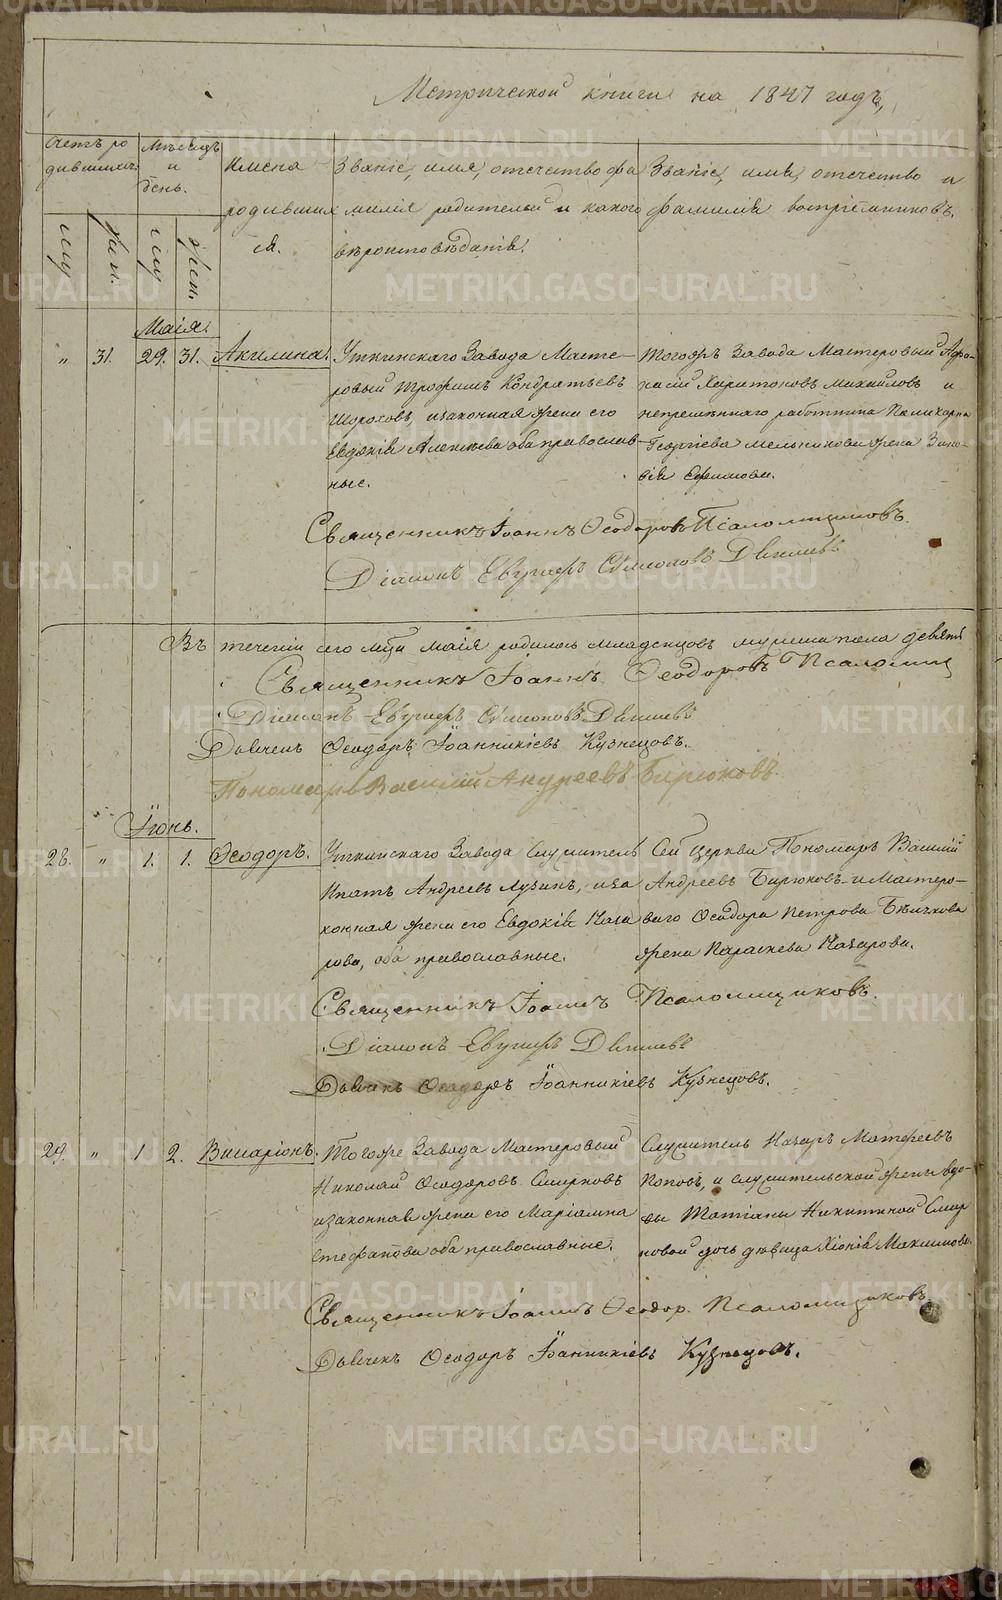 Метрической книги на 1847 годъ,
Счетъ ро
дившихъ.
Мѣсяцъ
и
день.
Имена
родивших
ся.
Званіе, имя, отечество фа
милія родителей и какого
вѣроисповѣданія.
Званіе, имя, отечество и
фамилія воспріемниковъ.
муж
жен.
Маія.
" 31. 29. 31. Акилина.
Уткинскаго Завода Масте-
ровый Трофимъ Кондратьевъ
Шороховъ, изаконная жена его
Евдокія Алексѣева оба православ-
ные.
Тогожъ Завода Мастеровый Афа-
насій Харитоновъ Михайловъ и
непремѣннаго работника Поликарпа
Георгіева Мельникова жена Зино-
вія Ефимова.
Священникъ Іоаннъ Ѳеодоровъ Псаломщиковъ.
Діаконъ Евграфъ Сѵмеоновъ
Въ теченіи сего мца Маія родилось младенцовъ мужеска пола девять
Священникъ Іоаннъ Ѳеодоровъ Псаломщ
Діаконъ Евграфъ Сѵмеоновъ
Дьячекъ Ѳеодоръ Іоанникіевъ Кузнецовъ.
Пономарь Василій Андреевъ Бирюковъ.
Іюнь.
28. " 1. 1. Ѳеодоръ.
Уткинскаго Завода Служитель
Ипатъ Андреевъ Лузинъ, иза
конная жена его Евдокія Наза
рова, оба православные.
Сей Церкви Пономарь Василій
Андреевъ Бирюковъ и Мастеро-
ваго Ѳеодора Петрова Бѣлкова
жена Параскева Назарова.
Священникъ Іоаннъ Псаломщиковъ.
Діаконъ Евграфъ
Дьячекъ Ѳеодоръ Іоанникіевъ Кузнецовъ.
29. " 1 2. Виссаріонъ.
Тогоже Завода Мастеровый
Николай Ѳеодоровъ Смирновъ
изаконная жена его Маріамна
Стефанова оба православные.
Служитель Назаръ Матфеевъ
Поповъ, и служительской жены вдо-
вы Татіаны Никитиной Смир
новой дочь дѣвица Хіонія Максимова.
Священникъ Іоаннъ Ѳеодор. Псаломщиковъ
Дьячекъ Ѳеодоръ Іоанникіевъ Кузнецовъ.
METRIKI.GASO-URAL.RU